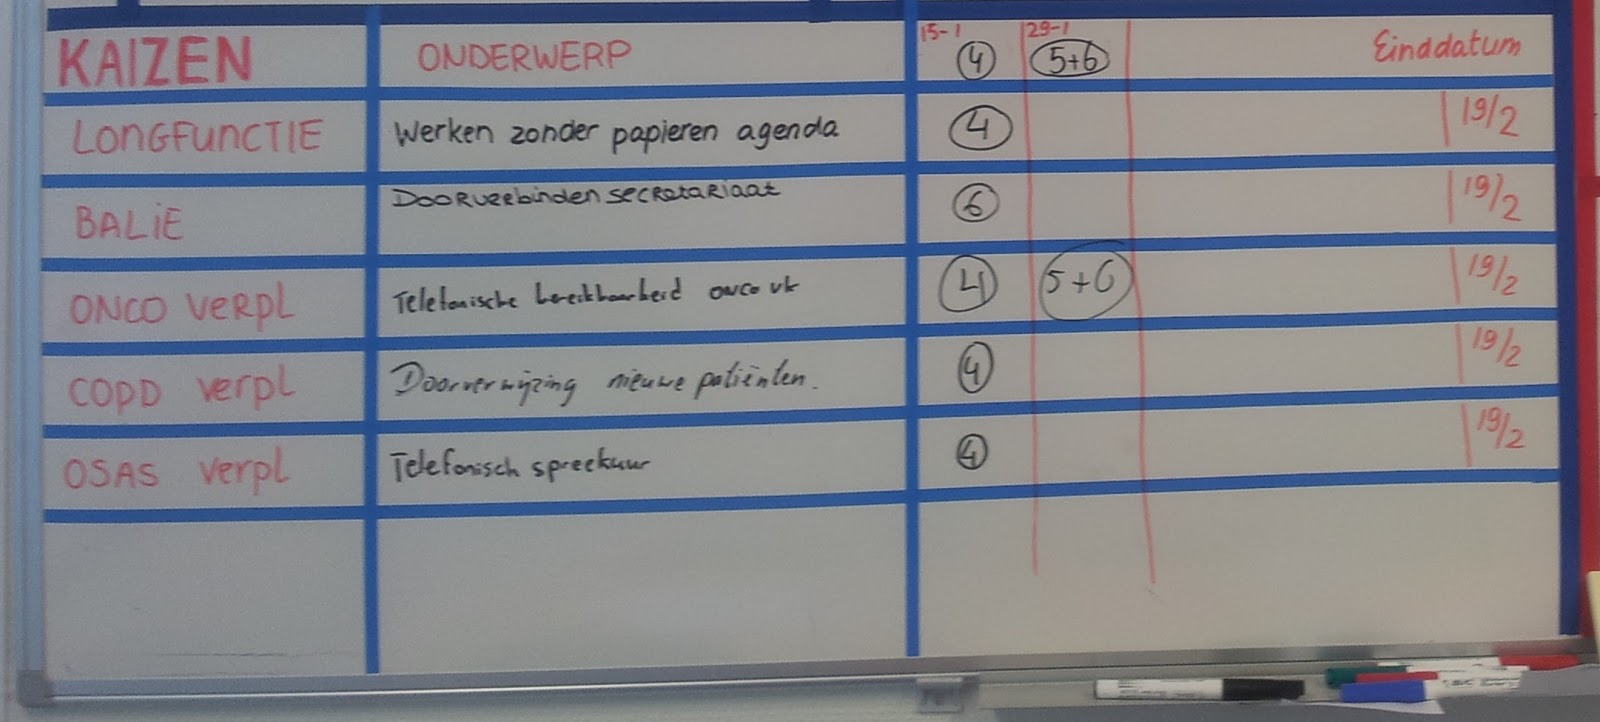 15-1 29-1
KAIZEN ONDERWERP 4 5+6 Einddatum
LONGFUNCTIE Werken zonder papieren agenda 4 19/2
BALIE Doorverbinden secretariaat 6 19/2
ONCO verpl Telefonische bereikbaarheid onco vk 4 5+6 19/2
COPD verpl Doorverwijzing nieuwe patiënten. 4 19/2
OSAS verpl Telefonisch spreekuur 4 19/2